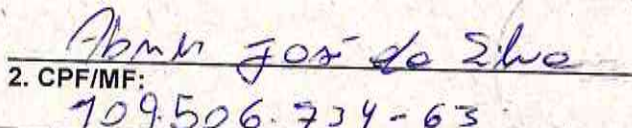 José da Silva
2. CPF/MF:
109.506.734-63